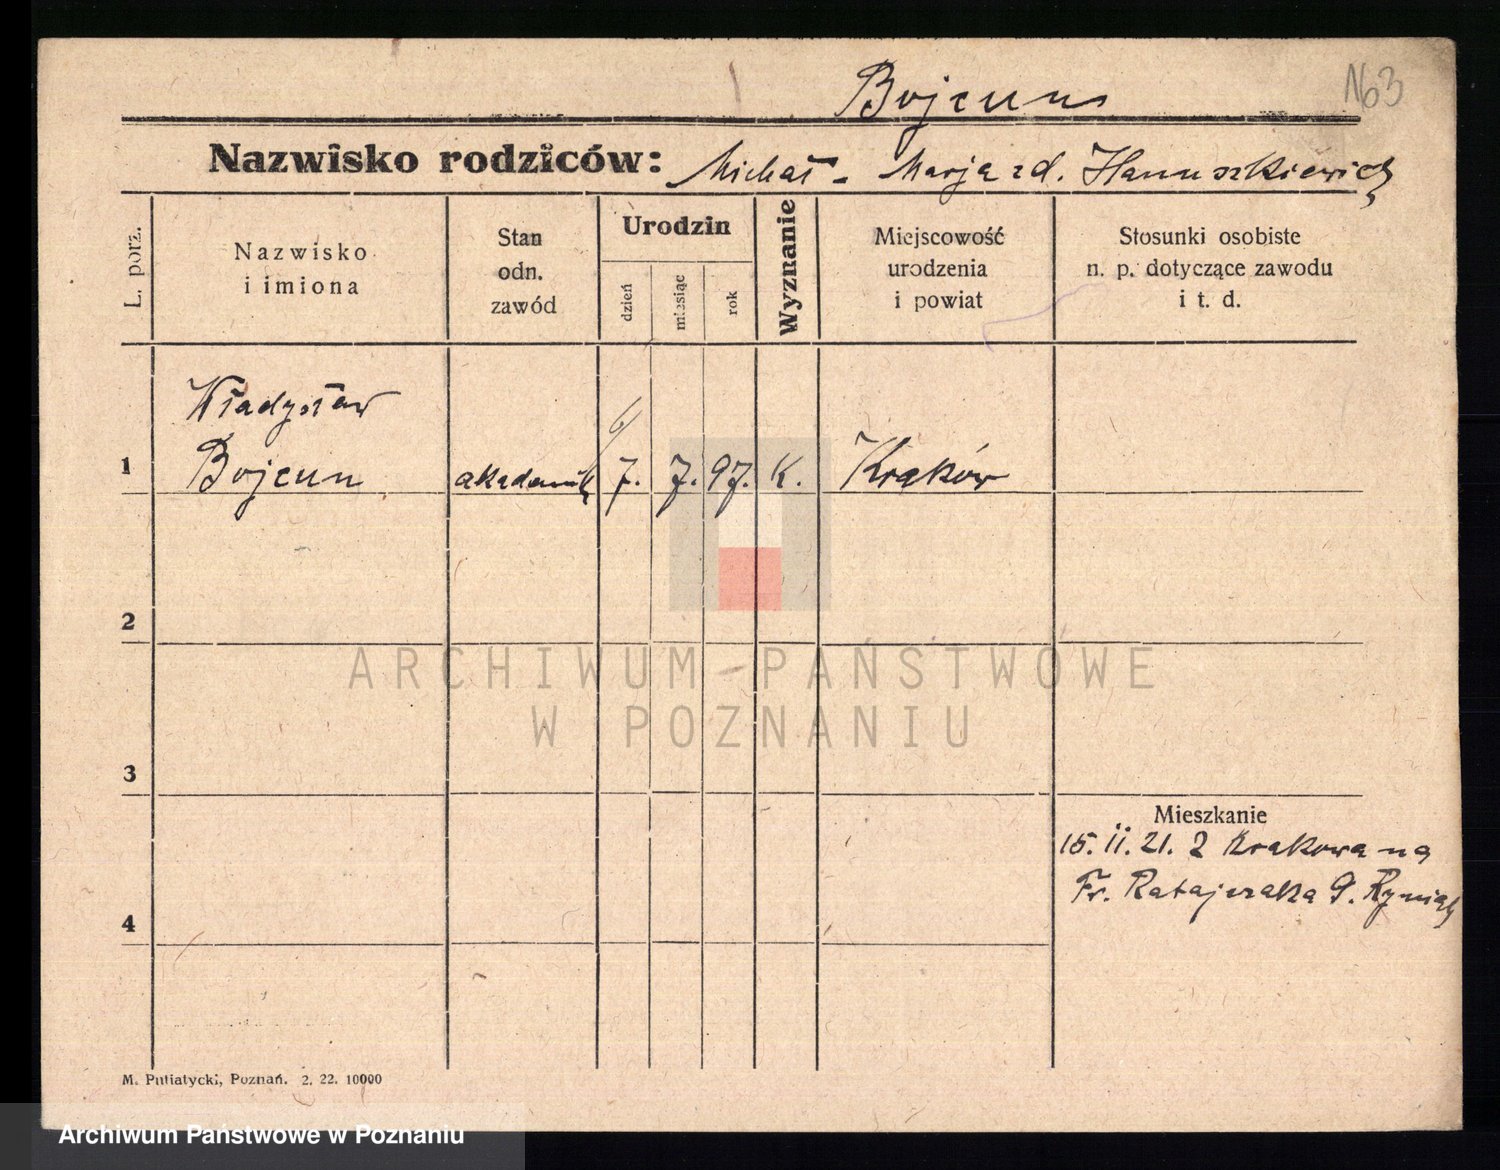 Bojcun
163
Nazwisko rodziców: Michał - Marja zd. Hanuszkiewicz
L. porz.
Nazwisko
i imiona
Stan
odn.
zawód
Urodzin
dzień
miesiąc
rok
Wyznanie
Miejscowość
urodzenia
i powiat
Stosunki osobiste
n. p. dotyczące zawodu
i t. d.
Władysław
6/
1 Bojcun akademik 7. 7. 97. K. Kraków
2
ARCHIWUM PAŃSTWOWE
W POZNANIU
3
Mieszkanie
15. II. 21. z Krakowa na
Fr. Ratajczaka 9.
4
M. Putiatycki, Poznań. 2. 22. 10000
Archiwum Państwowe w Poznaniu